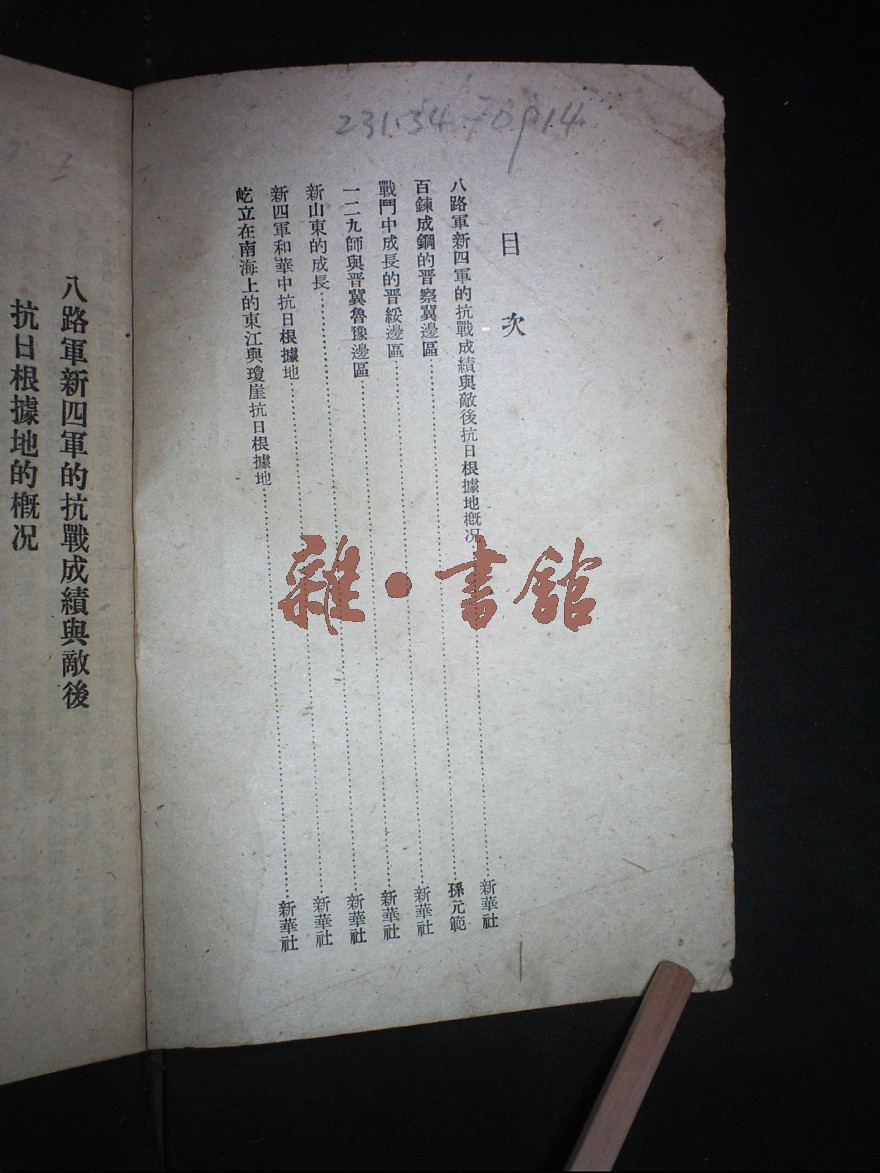 231.34
p14
目次
八路軍新四軍的抗戰成績與敵後抗日根據地概況……新華社
百鍊成鋼的晋察冀邊區……孫元範
戰鬥中成長的晋綏邊區……新華社
一二九師與晋冀魯豫邊區……新華社
新山東的成長……新華社
新四軍和華中抗日根據地……新華社
屹立在南海上的東江與瓊崖抗日根據地……新華社
八路軍新四軍的抗戰成績與敵後
抗日根據地的概况
雜·書館